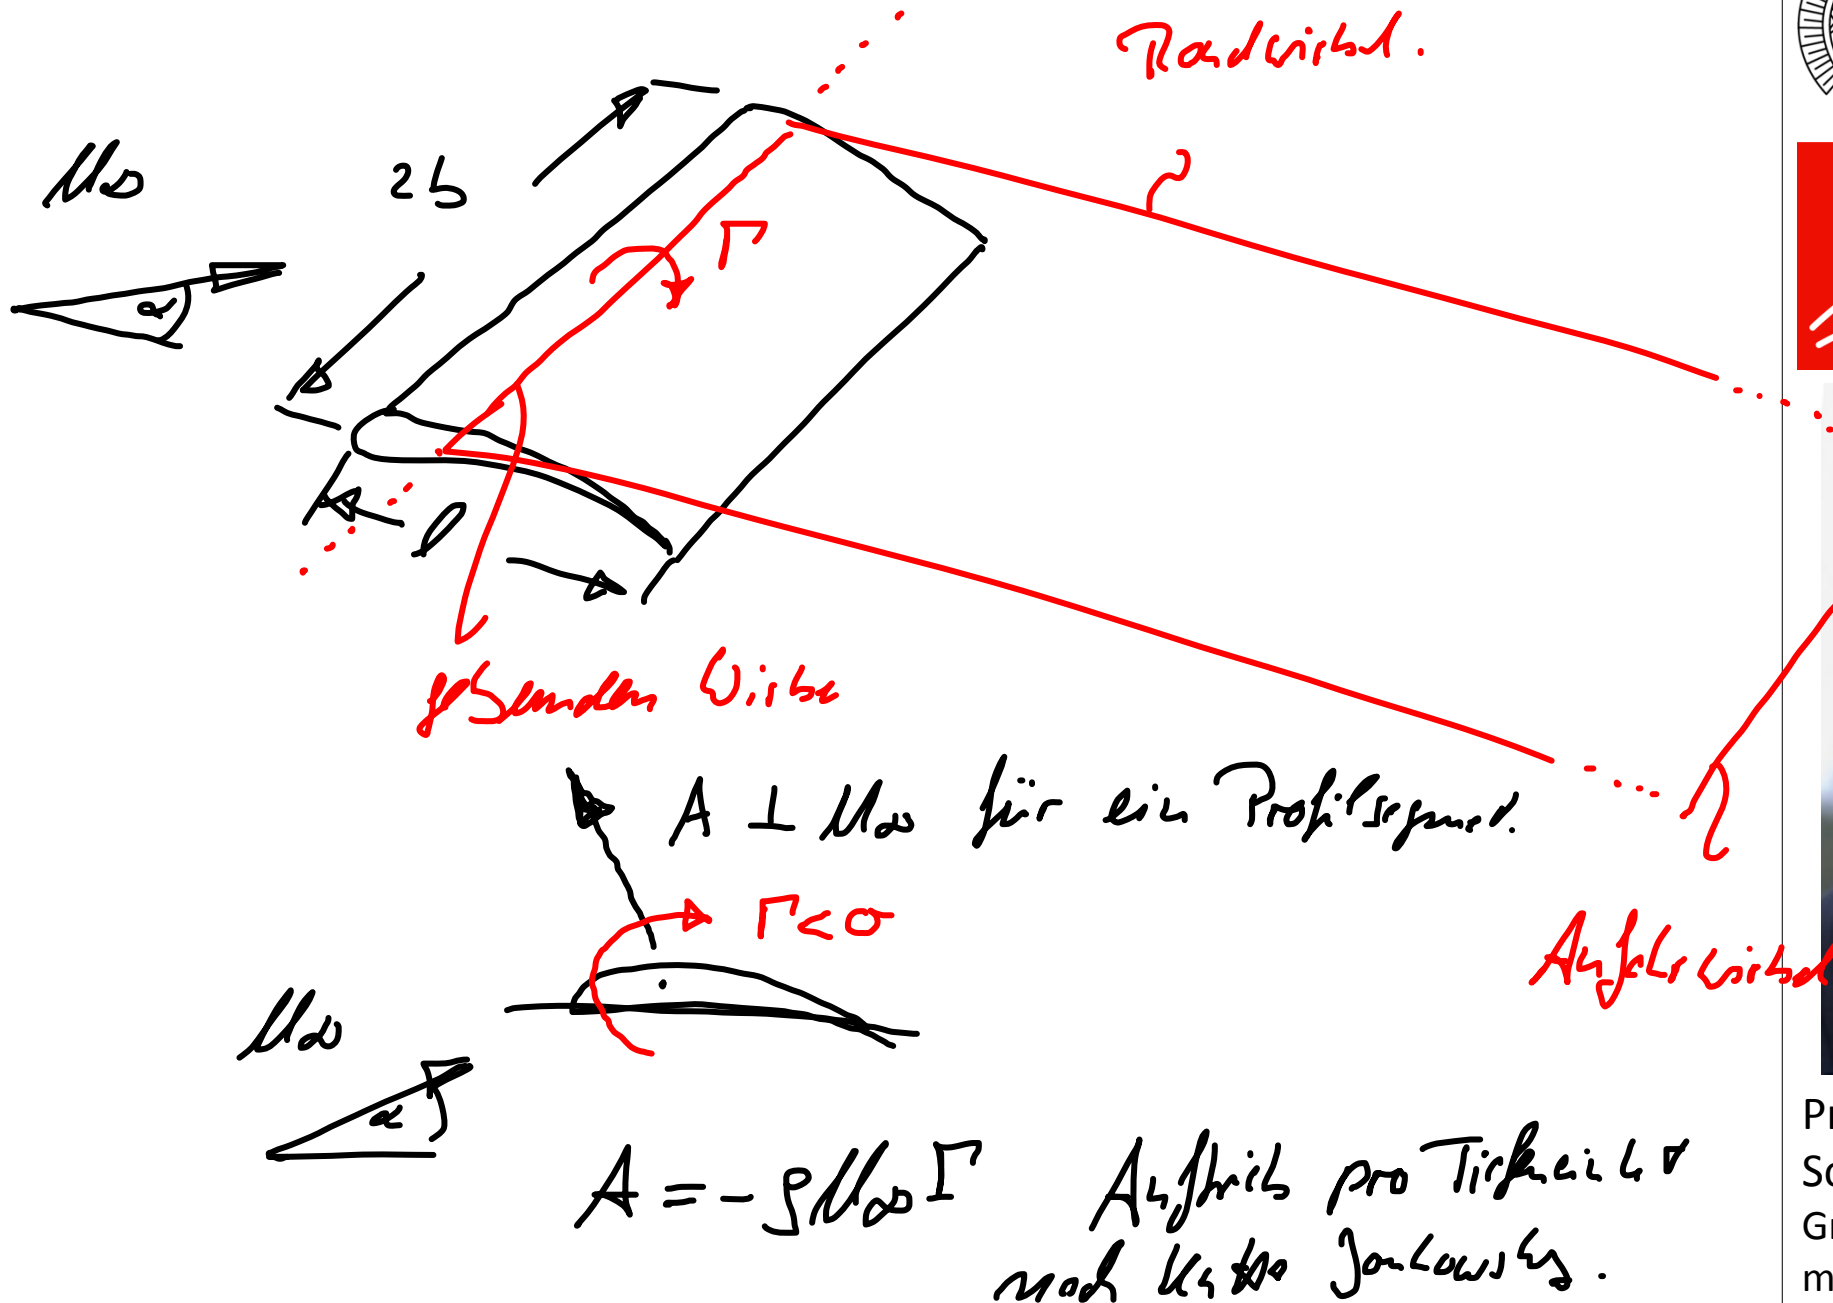 Randwirbel.
U∞
2b
Γ
α
l
gebundener Wirbel
A ⊥ U∞ für ein Profilsegment.
Γ<0
U∞
Anfahrwirbel
α
A = - ρ U∞ Γ Auftrieb pro Tiefeneinheit
nach Kutta Joukowsky.
Pr
Sc
Gr
m